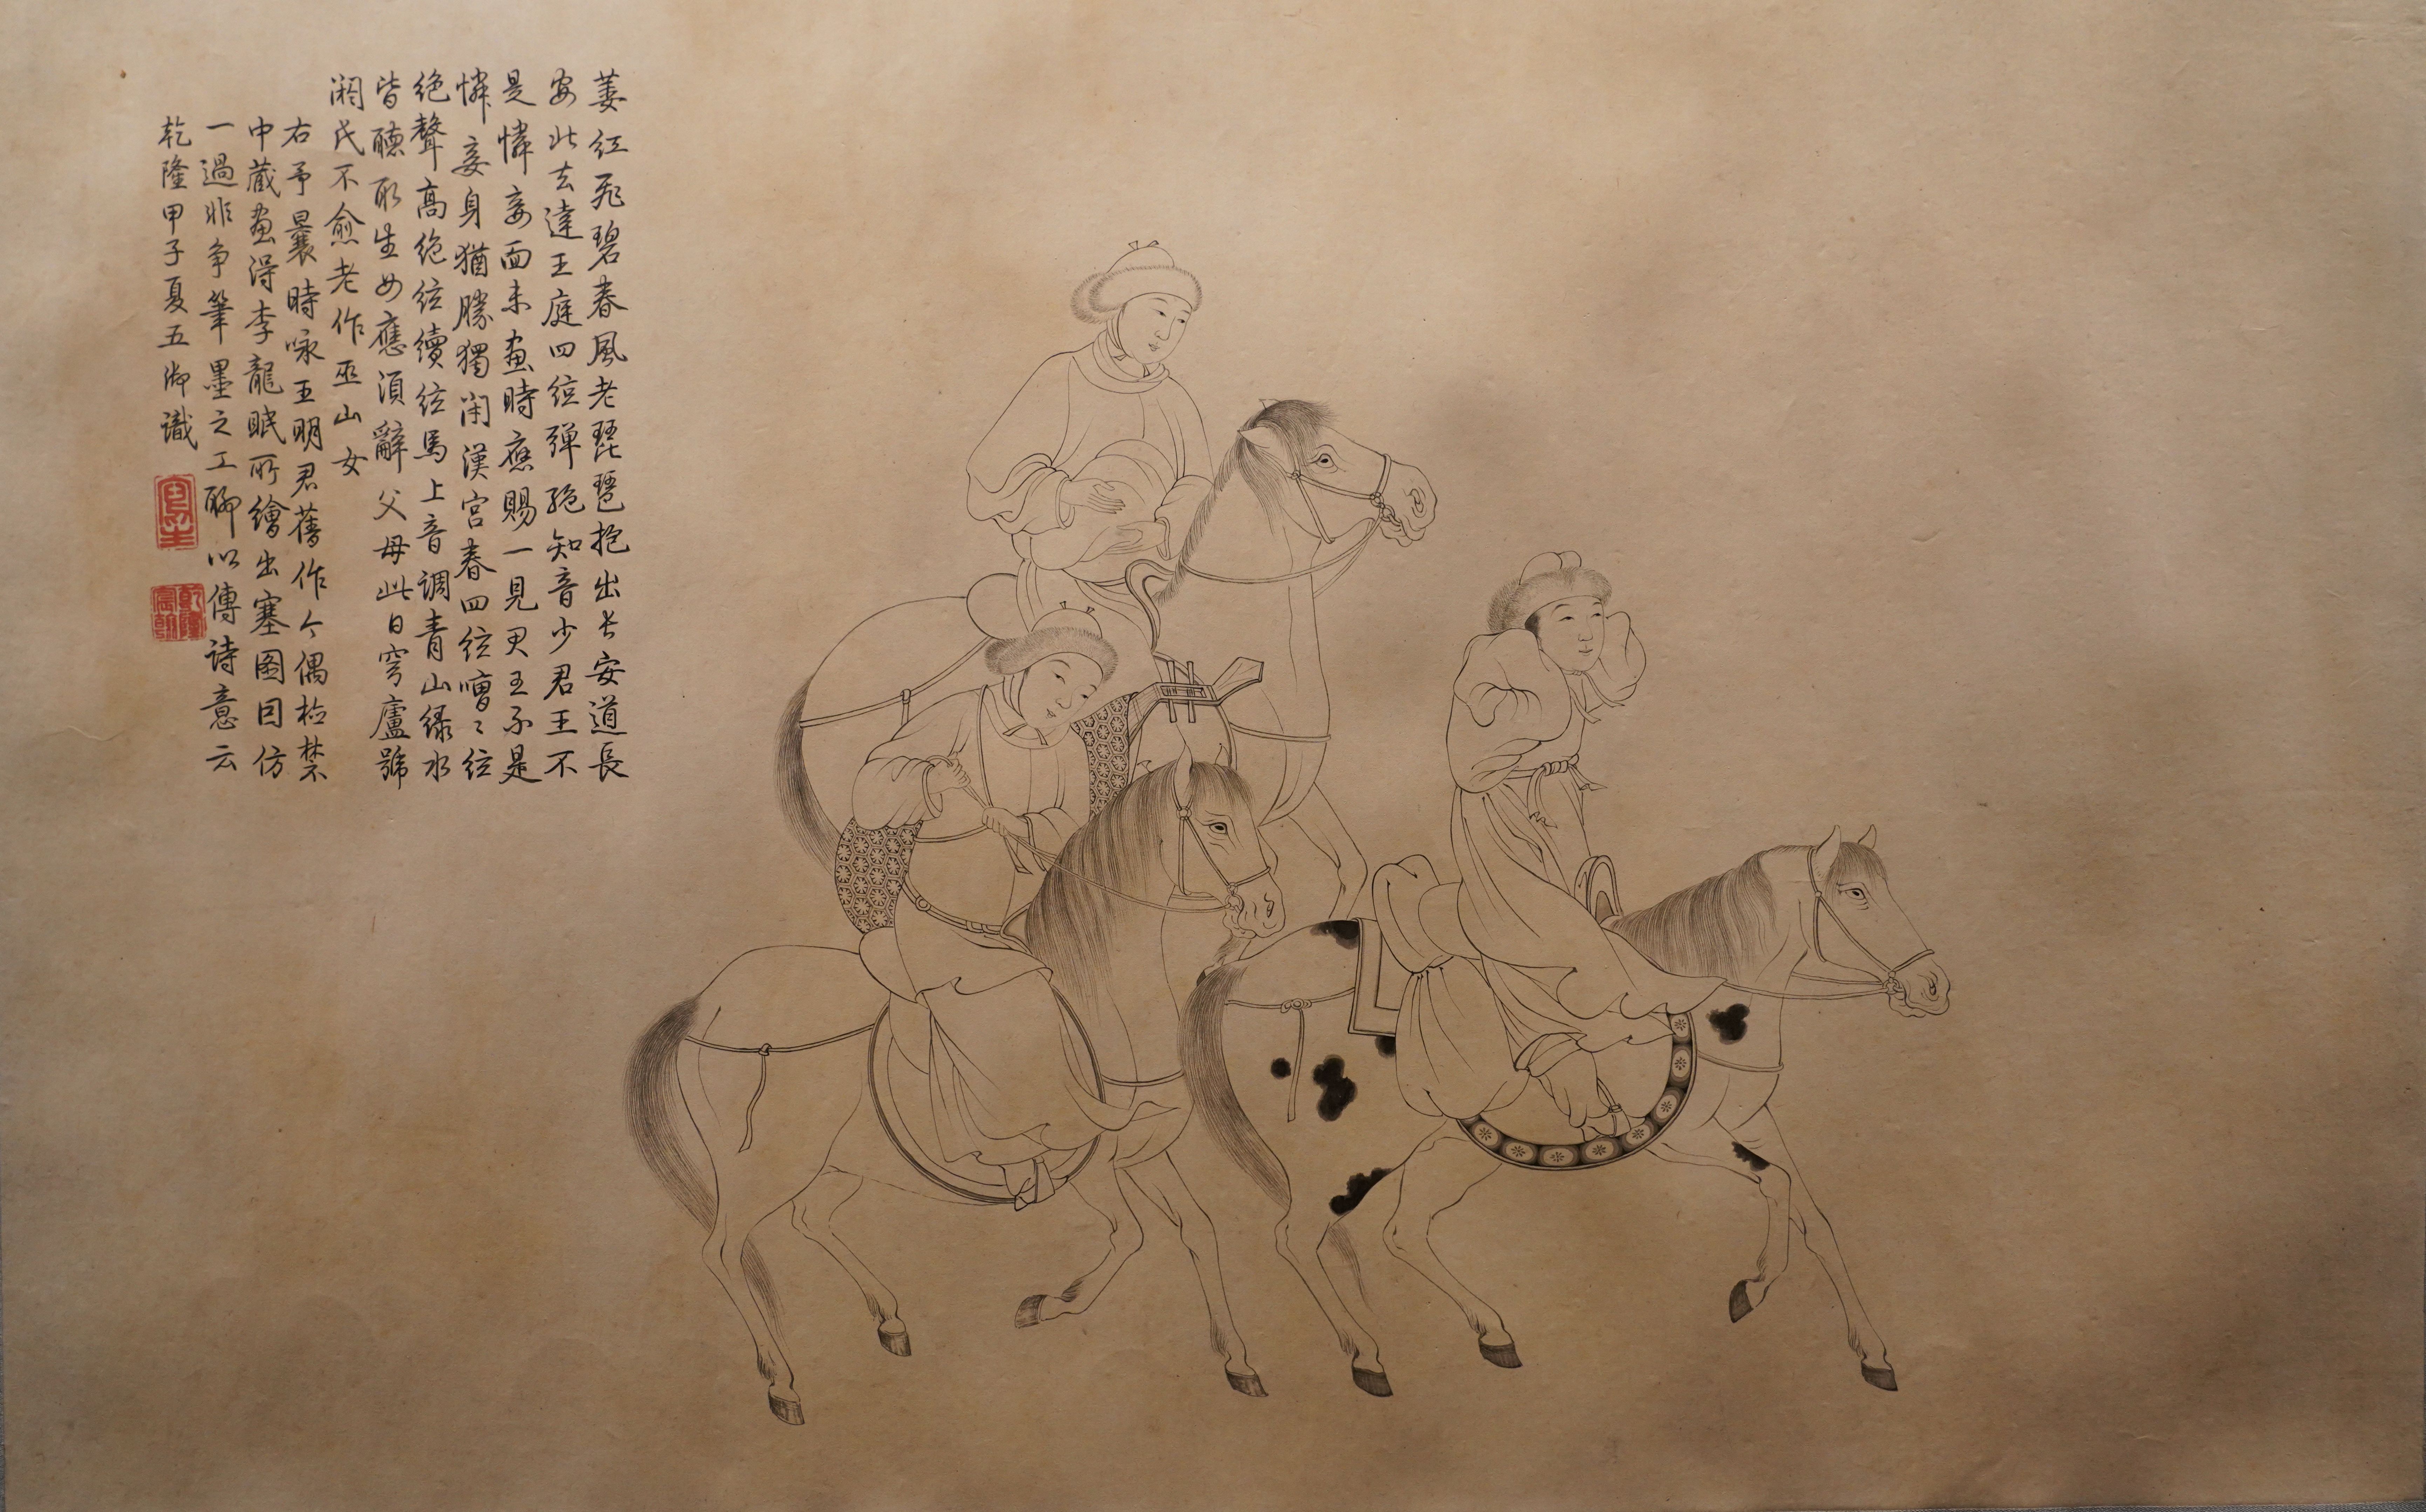 萎红飛碧春風老琵琶抱出長安道長
安此去達王庭四絃弹絶知音少君王不
是憐妾面未畫時應賜一見君王不是
憐妾身猶勝獨閉漢宮春四絃嘈〻絃
绝聲高絶絃續絃馬上音調青山緑水
皆聴取生女應須辭父母此日穹廬號
閼氏不愈老作巫山女
右予曩時咏王明君舊作今偶檢禁
中蔵畫得李龍眠所繪出塞圖因仿
一過非争筆墨之工聊以傳詩意云
乾隆甲子夏五御識
乾隆宸翰